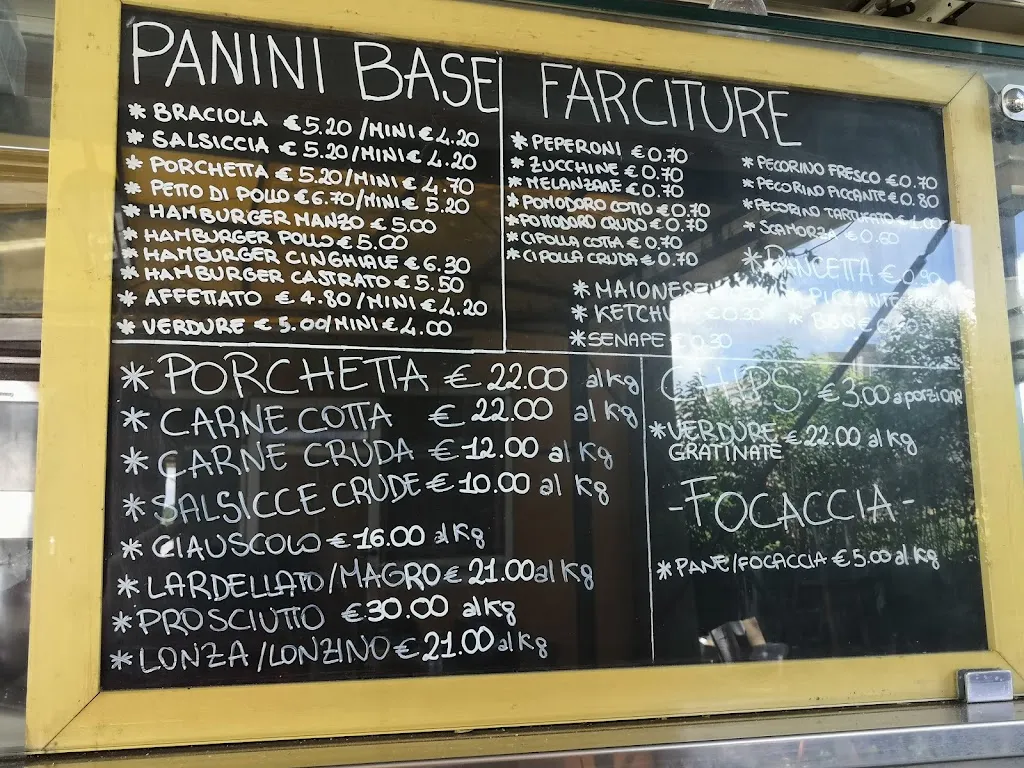 PANINI BASE
* BRACIOLA €5.20/MINI €4.20
* SALSICCIA €5.20/MINI € 4.20
* PORCHETTA €5.20/MINI € 4.70
* PETTO DI POLLO €6.70/MINI € 5.20
* HAMBURGER MANZO € 5.00
* HAMBURGER POLLO € 5.00
* HAMBURGER CINGHIALE € 6.30
* HAMBURGER CASTRATO € 5.50
* AFFETTATO € 4.80/MINI € 4.20
* VERDURE € 5.00/MINI € 4.00
FARCITURE
* PEPERONI €0.70
* ZUCCHINE €0.70
* MELANZANE €0.70
* POMODORO COTTO €0.70
* POMODORO CRUDO €0.70
* CIPOLLA COTTA € 0.70
* CIPOLLA CRUDA € 0.70
* PECORINO FRESCO €0.70
* PECORINO PICCANTE €0.80
* PECORINO TARTUFATO € 1.00
* SCAMORZA € 0.60
* PANCETTA €
* MAIONESE
* KETCHUP €0.30
* SENAPE €0.30
* PICCANTE
* BBQ
* PORCHETTA € 22.00 al kg
* CARNE COTTA € 22.00 al kg
* CARNE CRUDA € 12.00 al kg
* SALSICCE CRUDE € 10.00 al kg
* CIAUSCOLO € 16.00 al kg
* LARDELLATO/MAGRO € 21.00 al kg
* PROSCIUTTO €30.00 al kg
* LONZA/LONZINO € 21.00 al kg
CHIPS € 3.00 a porzione
* VERDURE € 22.00 al kg
GRATINATE
-FOCACCIA-
* PANE/FOCACCIA € 5.00 al kg